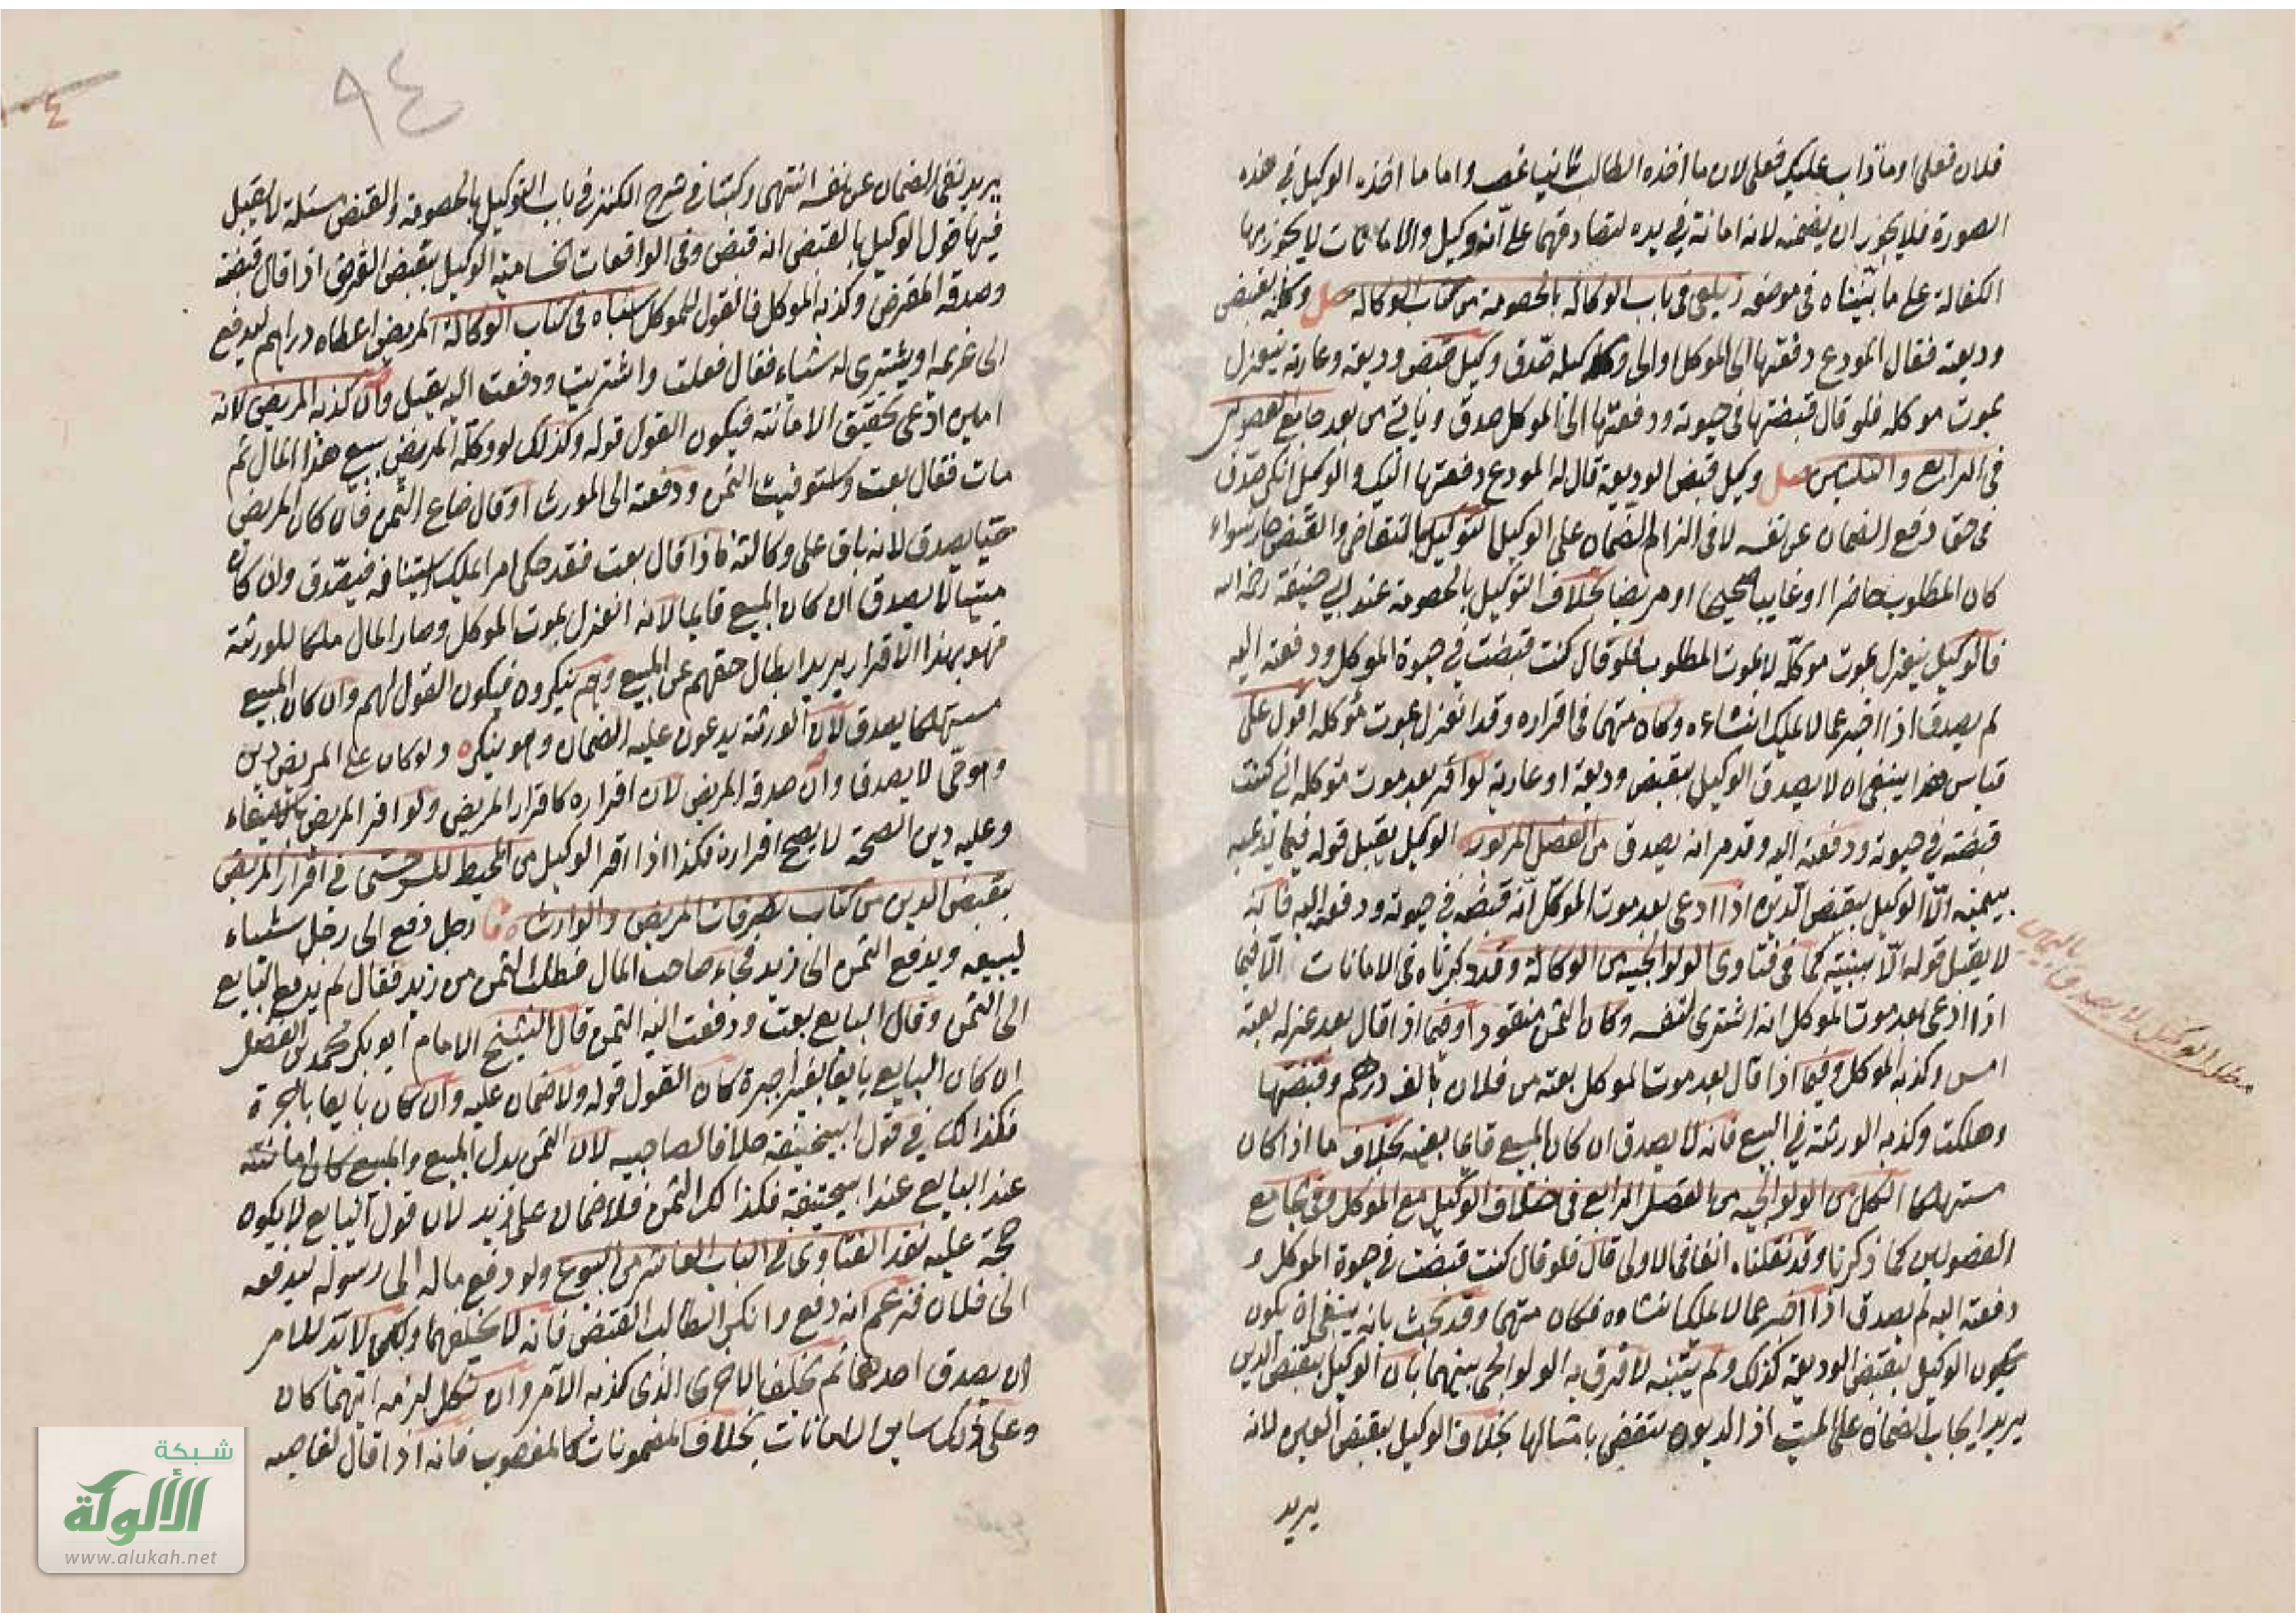 فلان فعلي او ما ذاب عليك فعلي لان ما اخذه الطالب ثانيا غصب واما ما اخذه الوكيل في هذه
الصورة فلا يجوز ان يضمنه لانه امانة في يده لتصادقهما على انه وكيل والامانات لا يجوز بها
الكفالة على ما بيناه في موضعه زيلعي في باب الوكالة بالخصومة من كتاب الوكالة وكله بقبض
وديعة فقال المودع دفعتها الى الموكل او الى وكيله صدق وكيل قبض وديعة وعارية ينعزل
بموت موكله فلو قال قبضتها في حيوته ودفعتها الى الموكل صدق وياتي من بعد جامع الفصولين
في الرابع والثلاثين وكيل قبض الوديعة قال له المودع دفعتها اليك والوكيل انكر صدق
في حق دفع الضمان عن نفسه لا في الزام الضمان على الوكيل التوكيل بالتقاضي والقبض جاز سواء
كان المطلوب حاضرا او غايبا صحيحا او مريضا بخلاف التوكيل بالخصومة عند ابي حنيفة رحمه الله
فالوكيل ينعزل بموت موكله لا بموت المطلوب فلو قال كنت قبضت في حيوة الموكل ودفعته اليه
لم يصدق اذا اخبر عما لا يملك انشاءه وكان متهما في اقراره وقد انعزل بموت موكله اقول على
قياس هذا ينبغي ان لا يصدق الوكيل بقبض وديعة او عارية لو اقر بعد موت موكله اني كنت
قبضته في حيوته ودفعته اليه وقد مر انه يصدق من الفصل المزبور الوكيل يقبل قوله فيما يدعيه
بيمينه الا الوكيل بقبض الدين اذا ادعى بعد موت الموكل انه قبضه في حيوته ودفعه اليه فانه
لا يقبل قوله الا ببينة كما في فتاوى الولوالجية من الوكالة وقد ذكرناه في الامانات الا فيما
اذا ادعى بعد موت الموكل انه اشترى لنفسه وكان الثمن منقودا وفيما اذا قال بعد عزله بعته
امس وكذبه الموكل وفيما اذا قال بعد موت الموكل بعته من فلان بالف درهم وقبضتها
وهلكت وكذبه الورثة في البيع فانه لا يصدق ان كان المبيع قايما بعينه بخلاف ما اذا كان
مستهلكا الكل من الولوالجية من الفصل الرابع في اختلاف الوكيل مع الموكل وفي جامع
الفصولين كما ذكرنا وقد نقلناه انفا في الاولى قال فلو قال كنت قبضت في حيوة الموكل و
دفعته اليه لم يصدق اذا اخبر عما لا يملك انشاءه فكان متهما وقد بحث بانه ينبغي ان يكون
الوكيل بقبض الوديعة كذلك ولم يتنبه لما فرق به الولوالجي بينهما بان الوكيل بقبض الدين
يريد ايجاب الضمان على الميت اذ الديون تقضى بامثالها بخلاف الوكيل بقبض العين لانه
يريد
مطلب الوكيل لا يصدق باليمين
٩٤
يريد نفي الضمان عن نفسه انتهى وكتبنا في شرح الكنز في باب التوكيل بالخصومة والقبض مسئلة لا يقبل
فيها قول الوكيل بالقبض انه قبض وفي الواقعات الحسامية الوكيل بقبض القرض اذا قال قبضته
وصدقه المقرض وكذبه الموكل فالقول للموكل اشباه في كتاب الوكالة المريض اعطاه دراهم ليدفع
الى غريمه او يشتري له شياء فقال فعلت واشتريت ودفعت اليه يقبل وان كذبه المريض لانه
امين ادعى تحقيق الامانة فيكون القول قوله وكذلك لو وكله المريض ببيع هذا المال ثم
مات فقال بعت واستوفيت الثمن ودفعته الى المورث او قال ضاع الثمن فان كان المريض
حيا يصدق لانه باق على وكالته فاذا قال بعت فقد حكى امرا يملك استينافه فيصدق وان كان
ميتا لا يصدق ان كان المبيع قايما لانه انعزل بموت الموكل وصار المال ملكا للورثة
فهو بهذا الاقرار يريد ابطال حقهم عن المبيع وهم ينكرون فيكون القول لهم وان كان المبيع
مستهلكا يصدق لان الورثة يدعون عليه الضمان وهو ينكره ولو كان على المريض دين
وهو حي لا يصدق وان صدقه المريض لان اقراره كاقرار المريض ولو اقر المريض باستيفاء
وعليه دين الصحة لا يصح اقراره فكذا اذا اقر الوكيل من المحيط للسرخسي في اقرار المريض
بقبض الدين من كتاب تصرفات المريض والوارث رجل دفع الى رجل شياء
ليبيعه ويدفع الثمن الى زيد فجاء صاحب المال فطلب الثمن من زيد فقال لم يدفع البايع
الى الثمن وقال البايع بعت ودفعت اليه الثمن قال الشيخ الامام ابو بكر محمد بن الفضل
ان كان البايع بايعا بغير اجرة كان القول قوله ولا ضمان عليه وان كان بايعا باجرة
فكذا لك في قول ابيحنيفة خلافا لصاحبيه لان الثمن بدل المبيع والمبيع كان امانة
عند البايع عند ابيحنيفة فكذا لك الثمن فلا ضمان على زيد لان قول البايع لا يكون
حجة عليه نقد الفتاوى في الباب العاشر من البيوع ولو دفع ماله الى رسوله ليدفعه
الى فلان فزعم انه دفع وانكر الطالب القبض فانه لا يحلفهما ولكن لا بد للامر
ان يصدق احدهما ثم يحلف الاخر الذي كذبه الآمر وان نكل لزمه ايهما كان
وعلى ذلك ساير الامانات بخلاف المضمونات كالمغصوب فانه اذا قال لغاصبه
شبكة
الألوكة
www.alukah.net